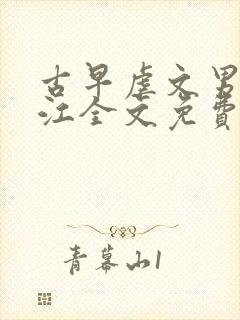 古早虐文男
江全文免费
青幕山1